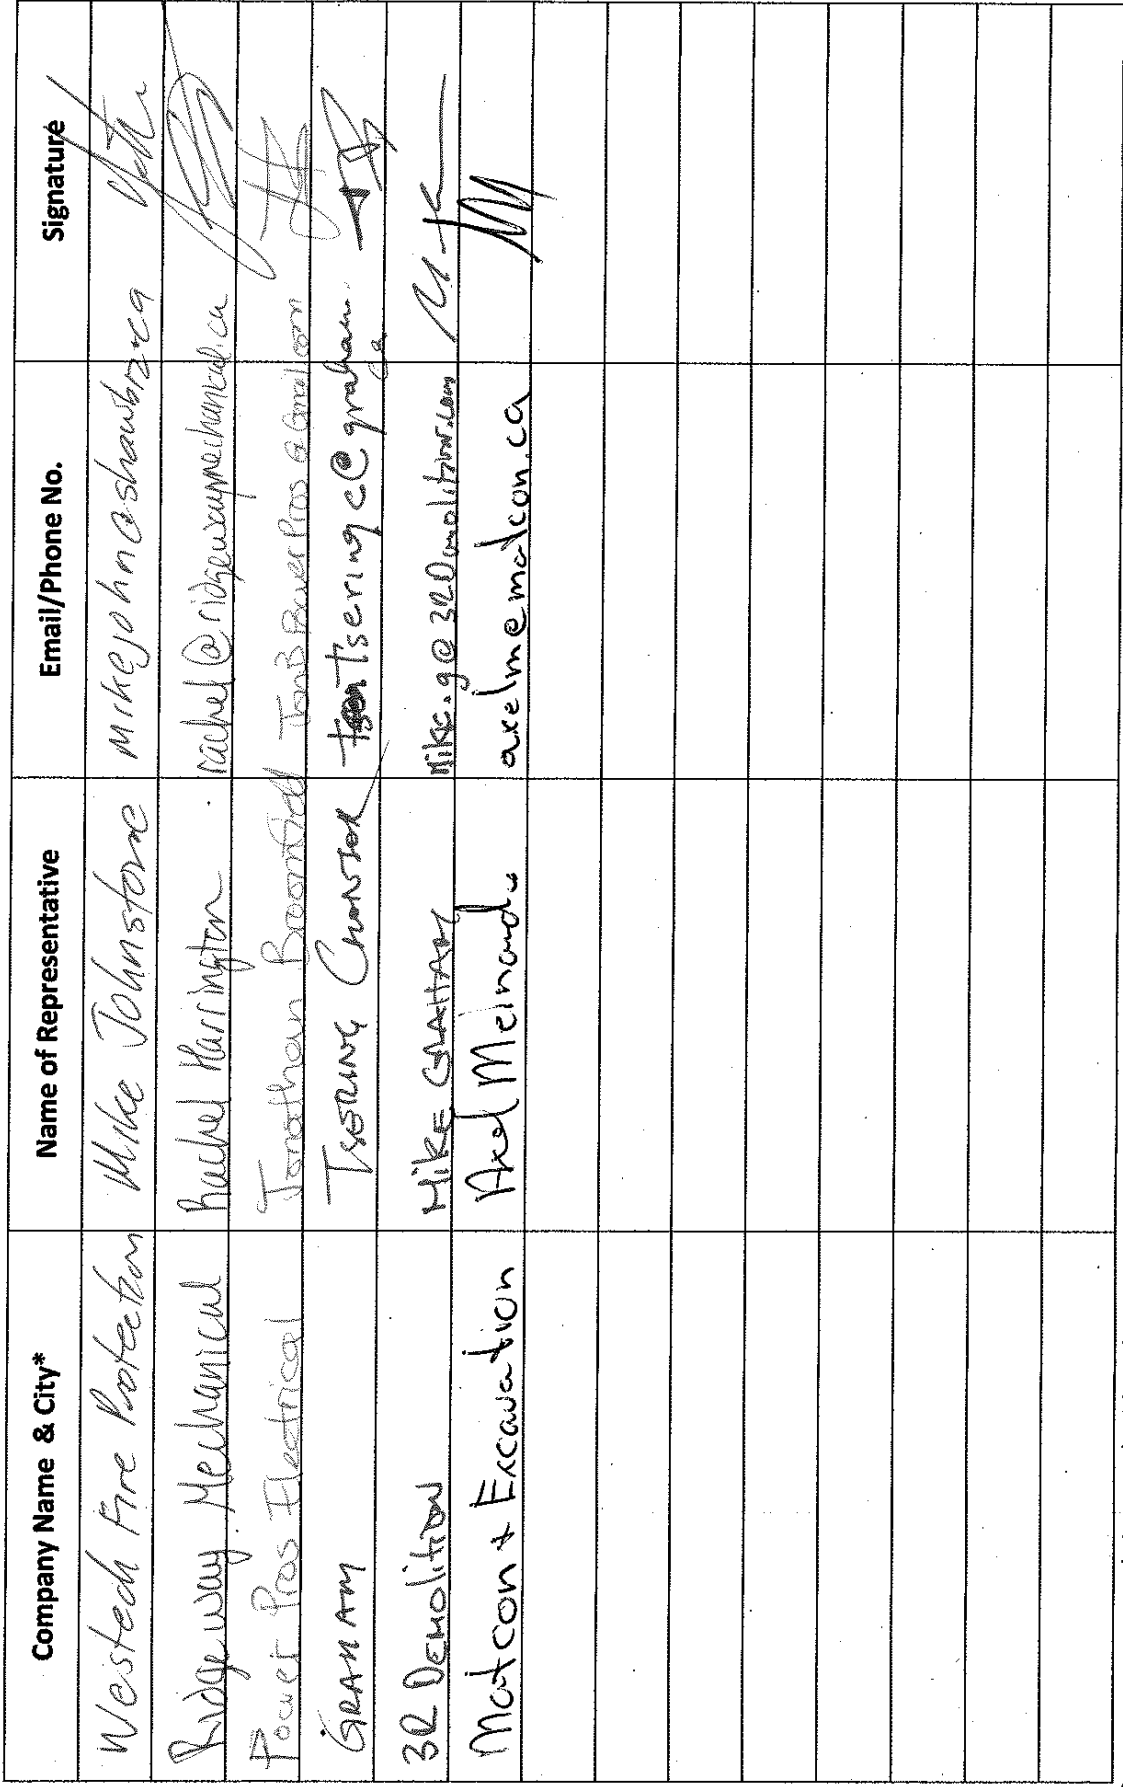 Company Name & City* Name of Representative Email/Phone No. Signature
Westech Fire Protection Mike Johnstone mikejohn@shawbiz.ca
Ridgeway Mechanical Rachel Harrington rachel@ridgewaymechanical.ca
Power Pros Electrical Jonathan Broomfield JonBPowerPros@Gmail.com
GRAHAM TSERING tseringc@graham.ca
3R DEMOLITION MIKE GRAHAM Mike.g@3RDemolition.com
Matcon + Excavation Axel axelm@matcon.ca